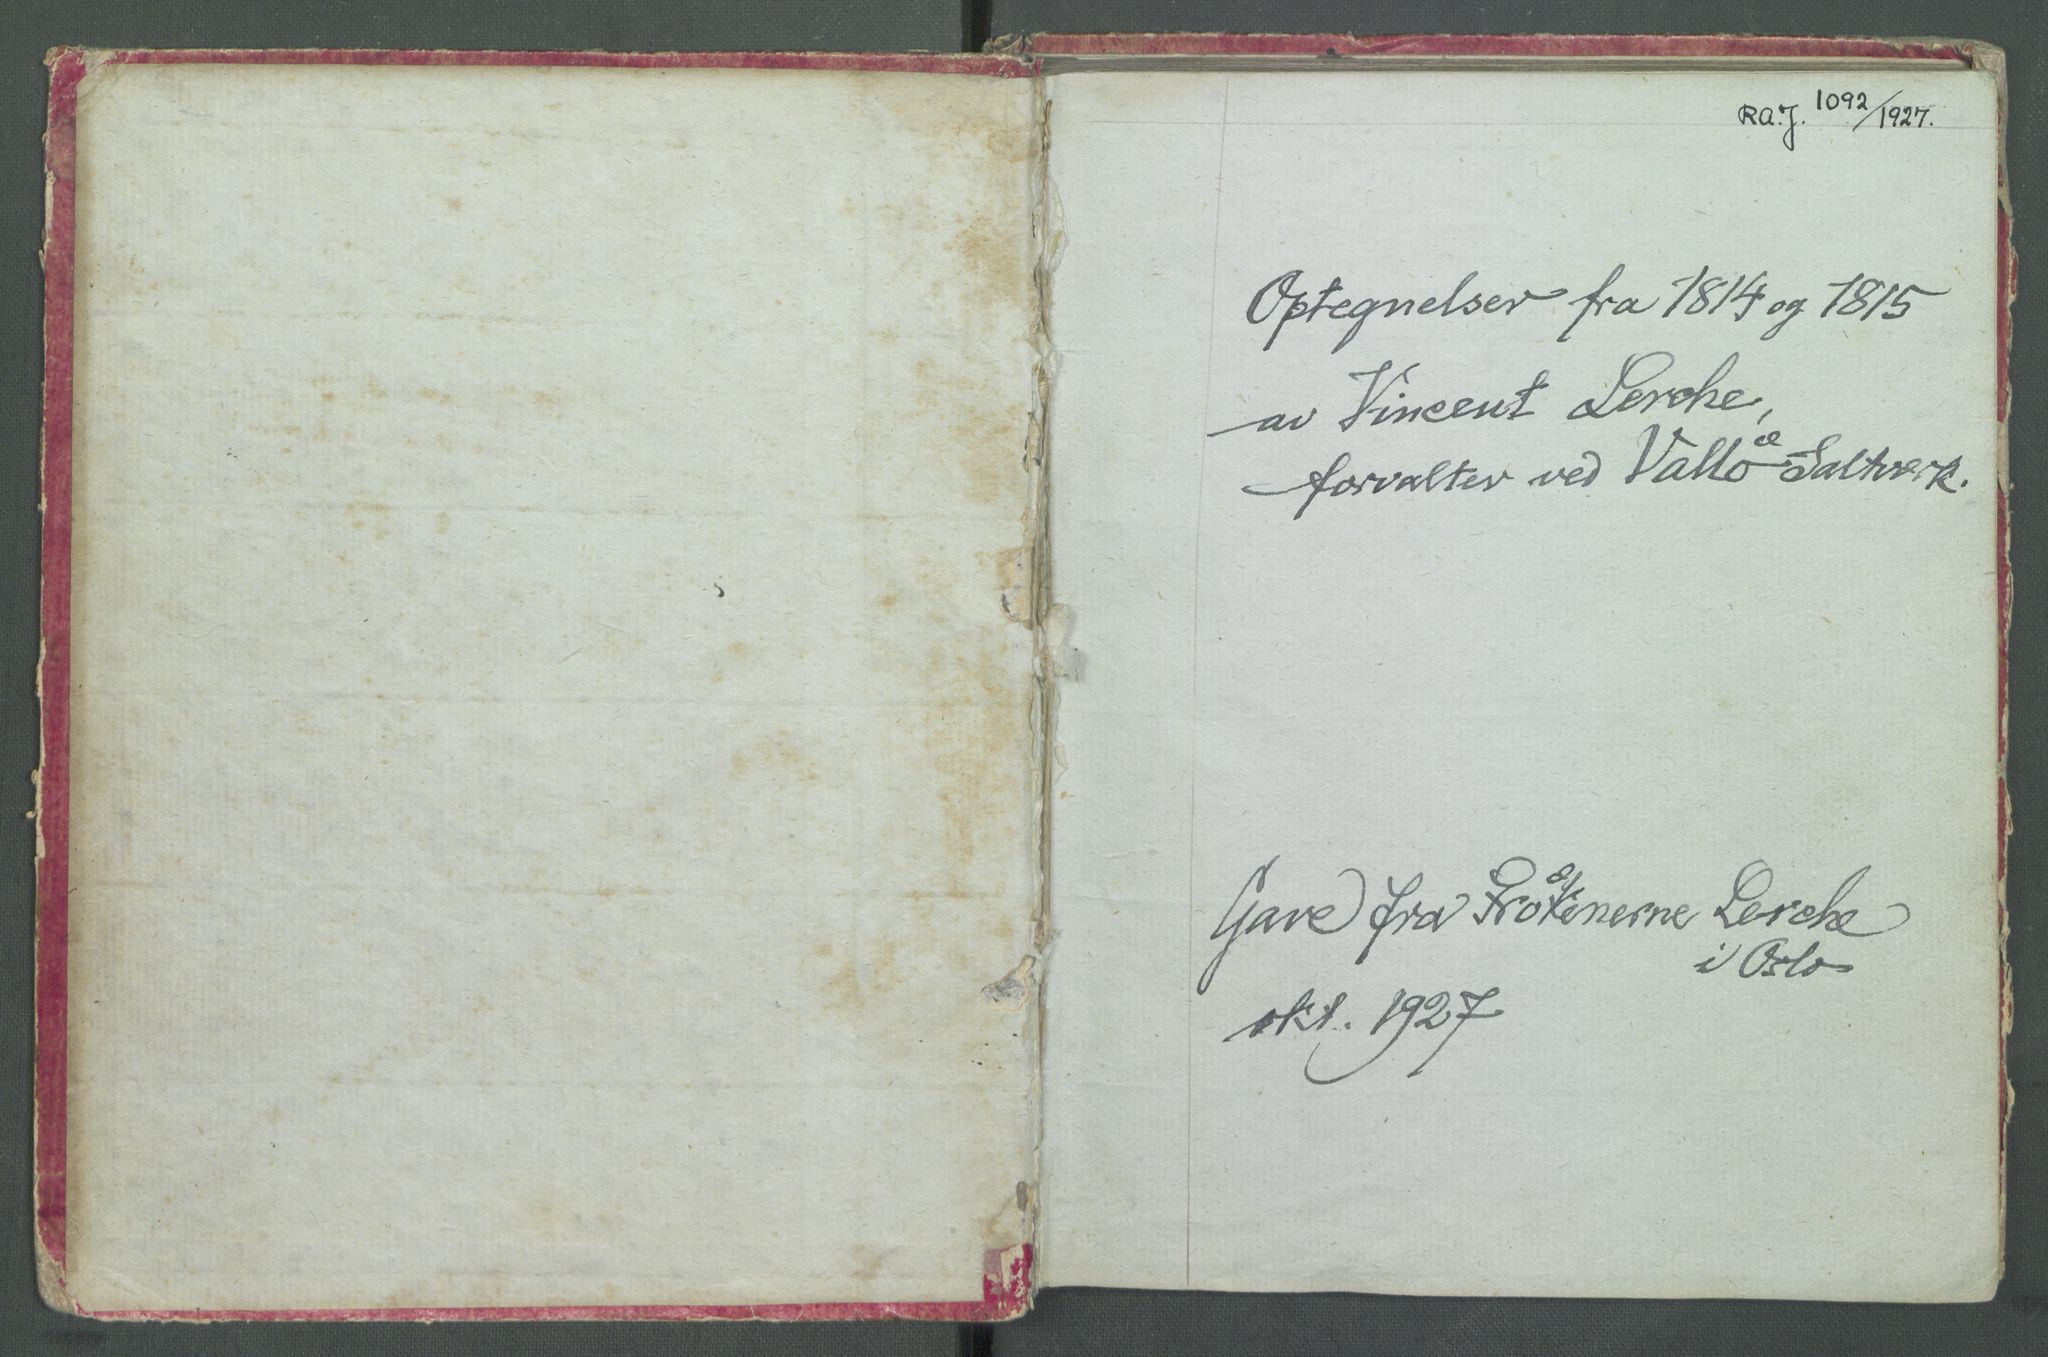 RA.J. 1092/1927.
Optegnelser fra 1814 og 1815
av Vincent Lerche,
forvalter ved Vallö Saltverk.
Gave fra Frökenerne Lerche
i Oslo
okt. 1927